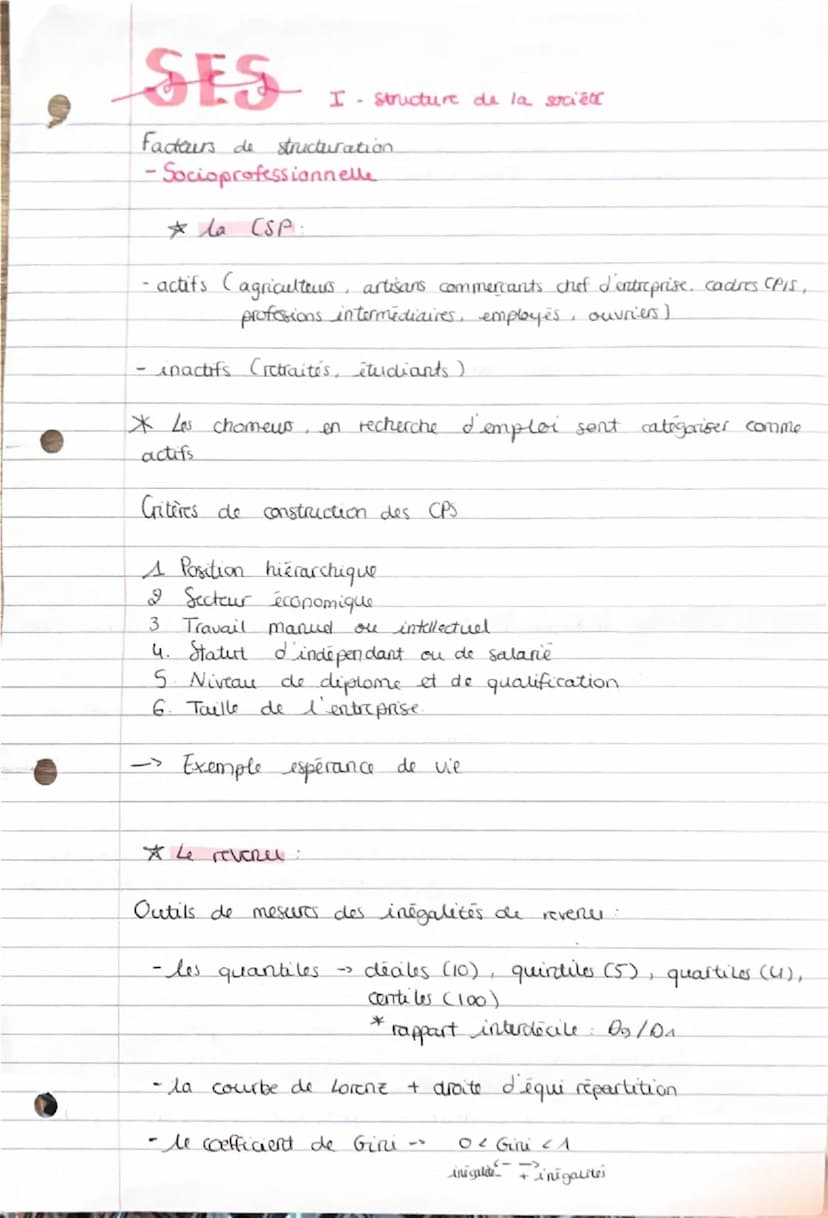 SES
I - structure de la société
Facteurs de structuration
- Socioprofessionnelle
* la CSP :
- actifs (agriculteurs, artisans commerçants chef d'entreprise. cadres CPIS,
professions intermédiaires, employés, ouvriers)
- inactifs (retraités, étudiants)
* Les chomeurs, en recherche d'emploi sont catégoriser comme
actifs
Critères de construction des CPS
1 Position hiérarchique
2 Secteur économique
3 Travail manuel ou intellectuel
4. Statut d'indépendant ou de salarié
5. Niveau de diplome et de qualification
6. Taille de l'entreprise.
-> Exemple espérance de vie
* Le revenu :
Outils de mesures des inégalités de revenu :
- les quantiles -> déciles (10), quintiles (5), quartiles (4),
centiles (100)
* rapport interdécile : D9/D1
- la courbe de Lorenz + droite d'équi répartition
- le coefficient de Gini -> 0 < Gini < 1
inégalité <- -> + inégalités